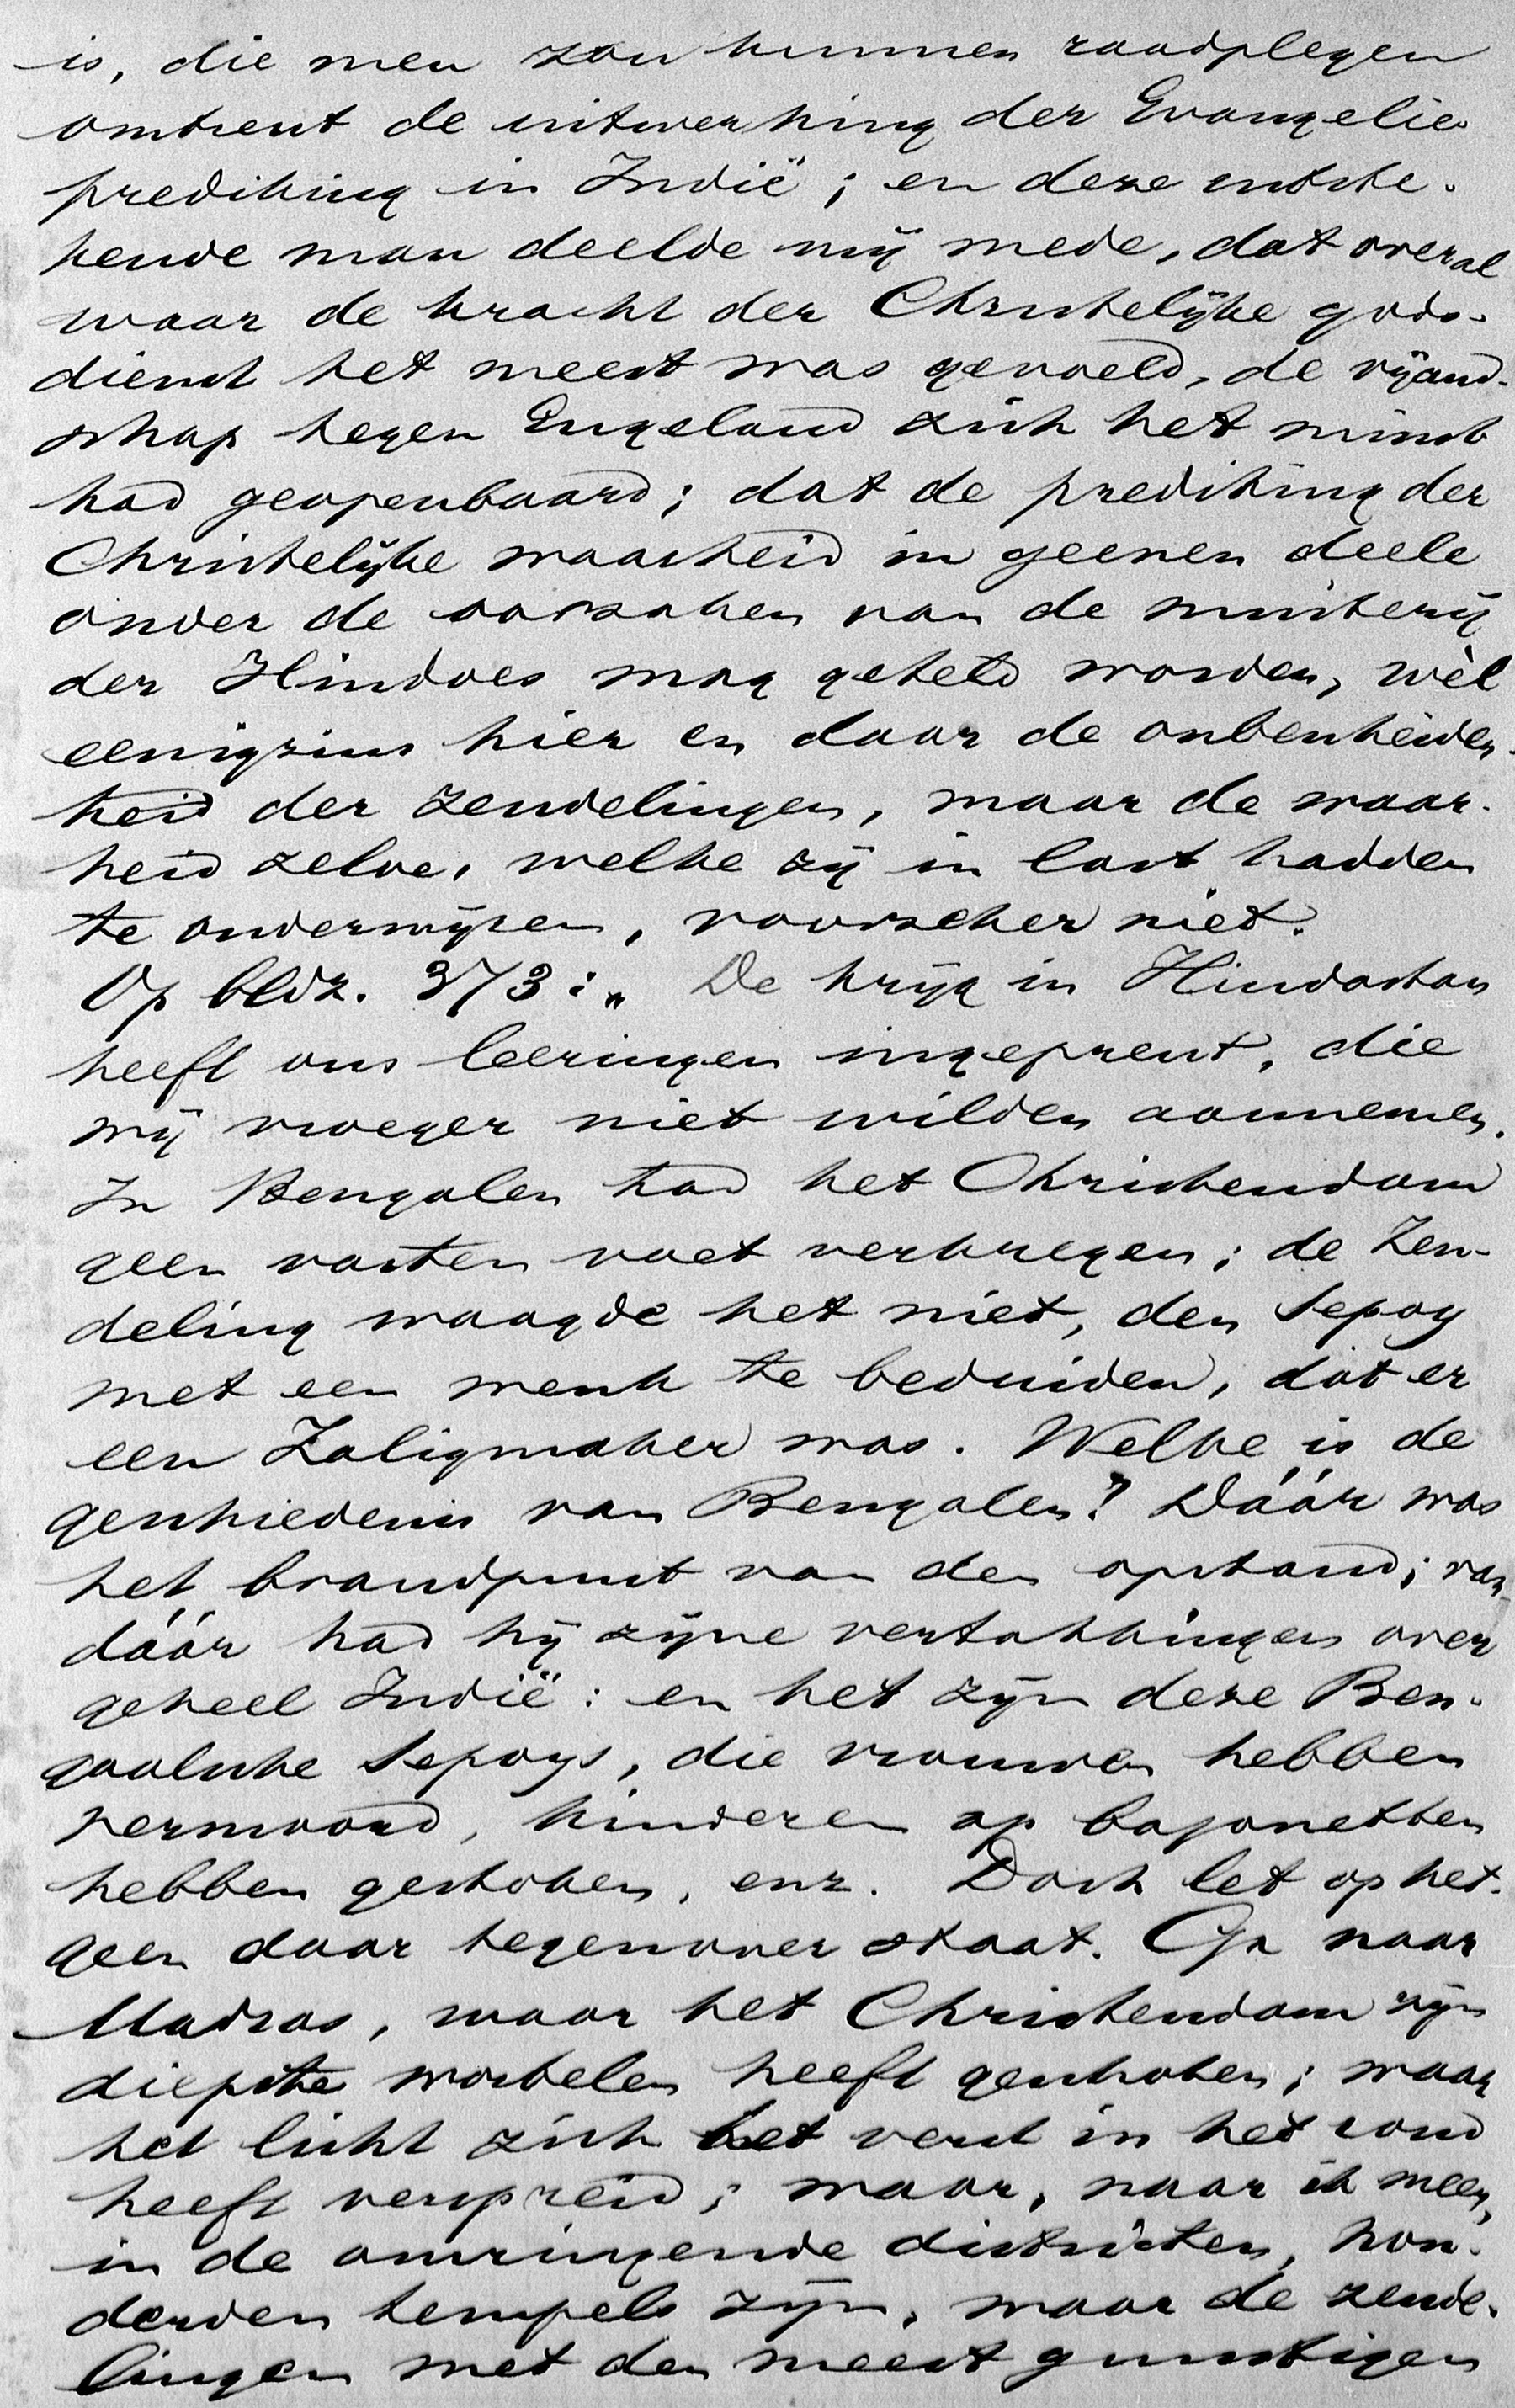 is, die men zou kunnen raadplegen
omtrent de uitwerking der Evangelie
prediking in Indië; en deze uitste-
kende man deelde mij mede, dat overal
waar de kracht der Christelijke gods-
dienst het meest was gevoeld, de vijand-
schap tegen Engeland zich het minst
had geopenbaard; dat de prediking der
Christelijke waarheid in geenen deele
onder de oorzaken van de muiterij
der Hindoes mag geteld worden, wèl
eenigzins hier en daar de onbescheiden-
heid der zendelingen, maar de waar-
heid zelve, welke zij in last hadden
te onderwijzen, voorzeker niet.
Op bldz. 373: „ De krijg in Hindostan
heeft ons leeringen ingeprent, die
wij vroeger niet wilden aannemen.
In Bengalen had het Christendom
geen vasten voet verkregen; de Zen-
deling waagde het niet, den Sepoy
met een wenk te beduiden, dat er
een Zaligmaker was. Welke is de
geschiedenis van Bengalen? Dáár was
het brandpunt van den opstand; van
dáár had hij zijne vertakkingen over
geheel Indië: en het zijn deze Ben-
gaalsche Sepoys, die vrouwen hebben
vermoord, kinderen op bajonetten
hebben gestoken, enz. Doch let op het-
geen daar tegenover staat. Ga naar
Madras, waar het Christendom zijn
diepste wortelen heeft geschoten; waar
het licht zich het verst in het rond
heeft verspreid; waar, naar ik meen,
in de omringende districten, hon-
derden tempels zijn, waar de zende-
lingen met den meest gunstigen